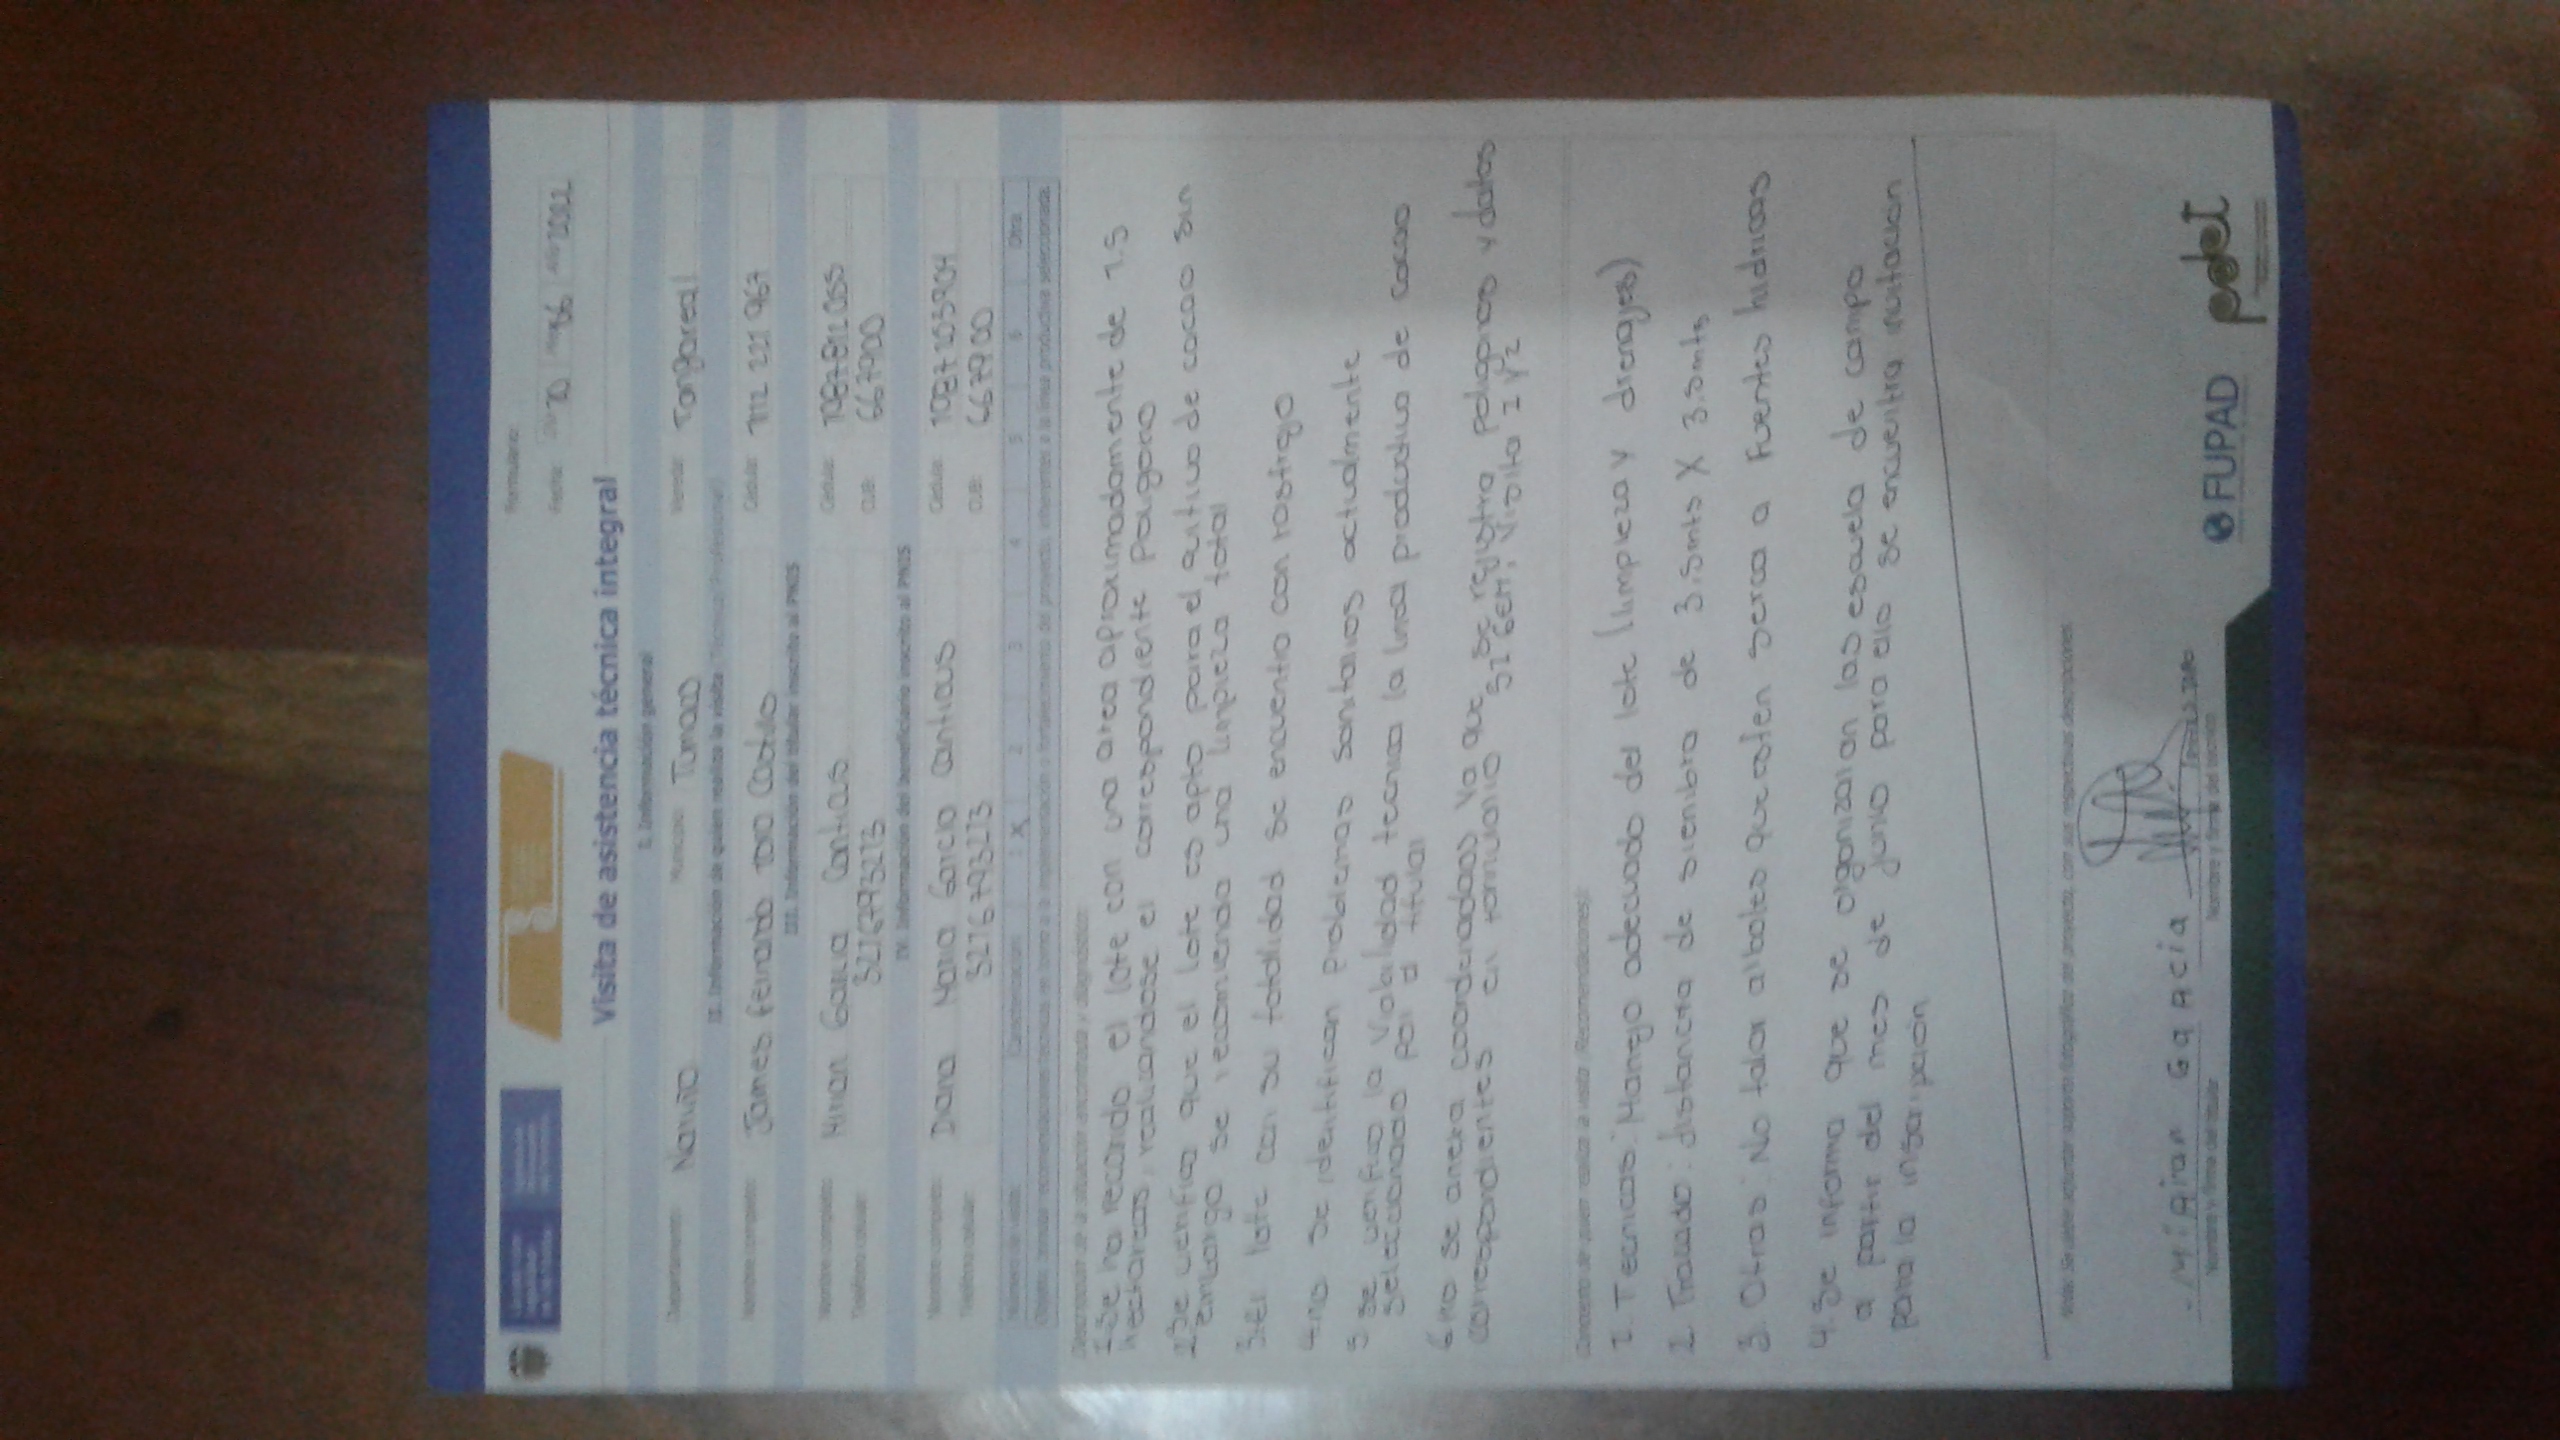 Formulario:
Fecha: 10 06 2022
Visita de asistencia técnica integral
I. Información general
Departamento: Nariño Municipio: Tumaco Vereda: Tangareal
II. Información de quien realiza la visita (Técnico/Profesional)
Nombre completo: James fernando Toro Castillo Cédula: 1112 221 967
III. Información del titular inscrito al PNIS
Nombre completo: Miriam Garcia Canticus Cédula: 1087812055
Teléfono celular: 3216793273 CUB: 667900
IV. Información del beneficiario inscrito al PNIS
Nombre completo: Diana Maria Garcia Canticus Cédula: 1087203904
Teléfono celular: 3216793273 CUB: 667900
Número de visita: Caracterización 1 X 2 3 4 5 6 Otra
Descripción de la situación encontrada y diagnóstico:
1. Se ha recorrido el lote con una area aproximadamente de 1.5
hectareas, realizandose el correspondiente Poligono
2. Se verifica que el lote es apto para el cultivo de cacao sin
embargo se recomienda una limpieza total
3. El lote con su totalidad se encuentra con rastrojo
4. no se identifican problemas sanitarios actualmente
5. se verifica la Viabilidad tecnica la linea productiva de cacao
seleccionado por el titular
6. no se anexa coordenadas ya que se registra poligonos y datos
correspondientes en formulario SIGEM, Visita 1 y 2
Concepto de quien realiza la visita (Recomendaciones):
1. Tecnicas: Manejo adecuado del lote (limpieza y drenajes)
2. Trazado: distancia de siembra de 3.5mts X 3.5mts
3. Otras: No talar arboles que esten serca a fuentes hidricas
4. Se informa que se organizaran las escuela de campo
a partir del mes de junio para ello se encuentra invitacion
para la inscripcion
Nota: Se deben adjuntar soportes fotográficos del proyecto, con sus respectivas descripciones
Miriam Garcia
Nombre y firma del titular Nombre y firma del técnico
FUPAD pdet